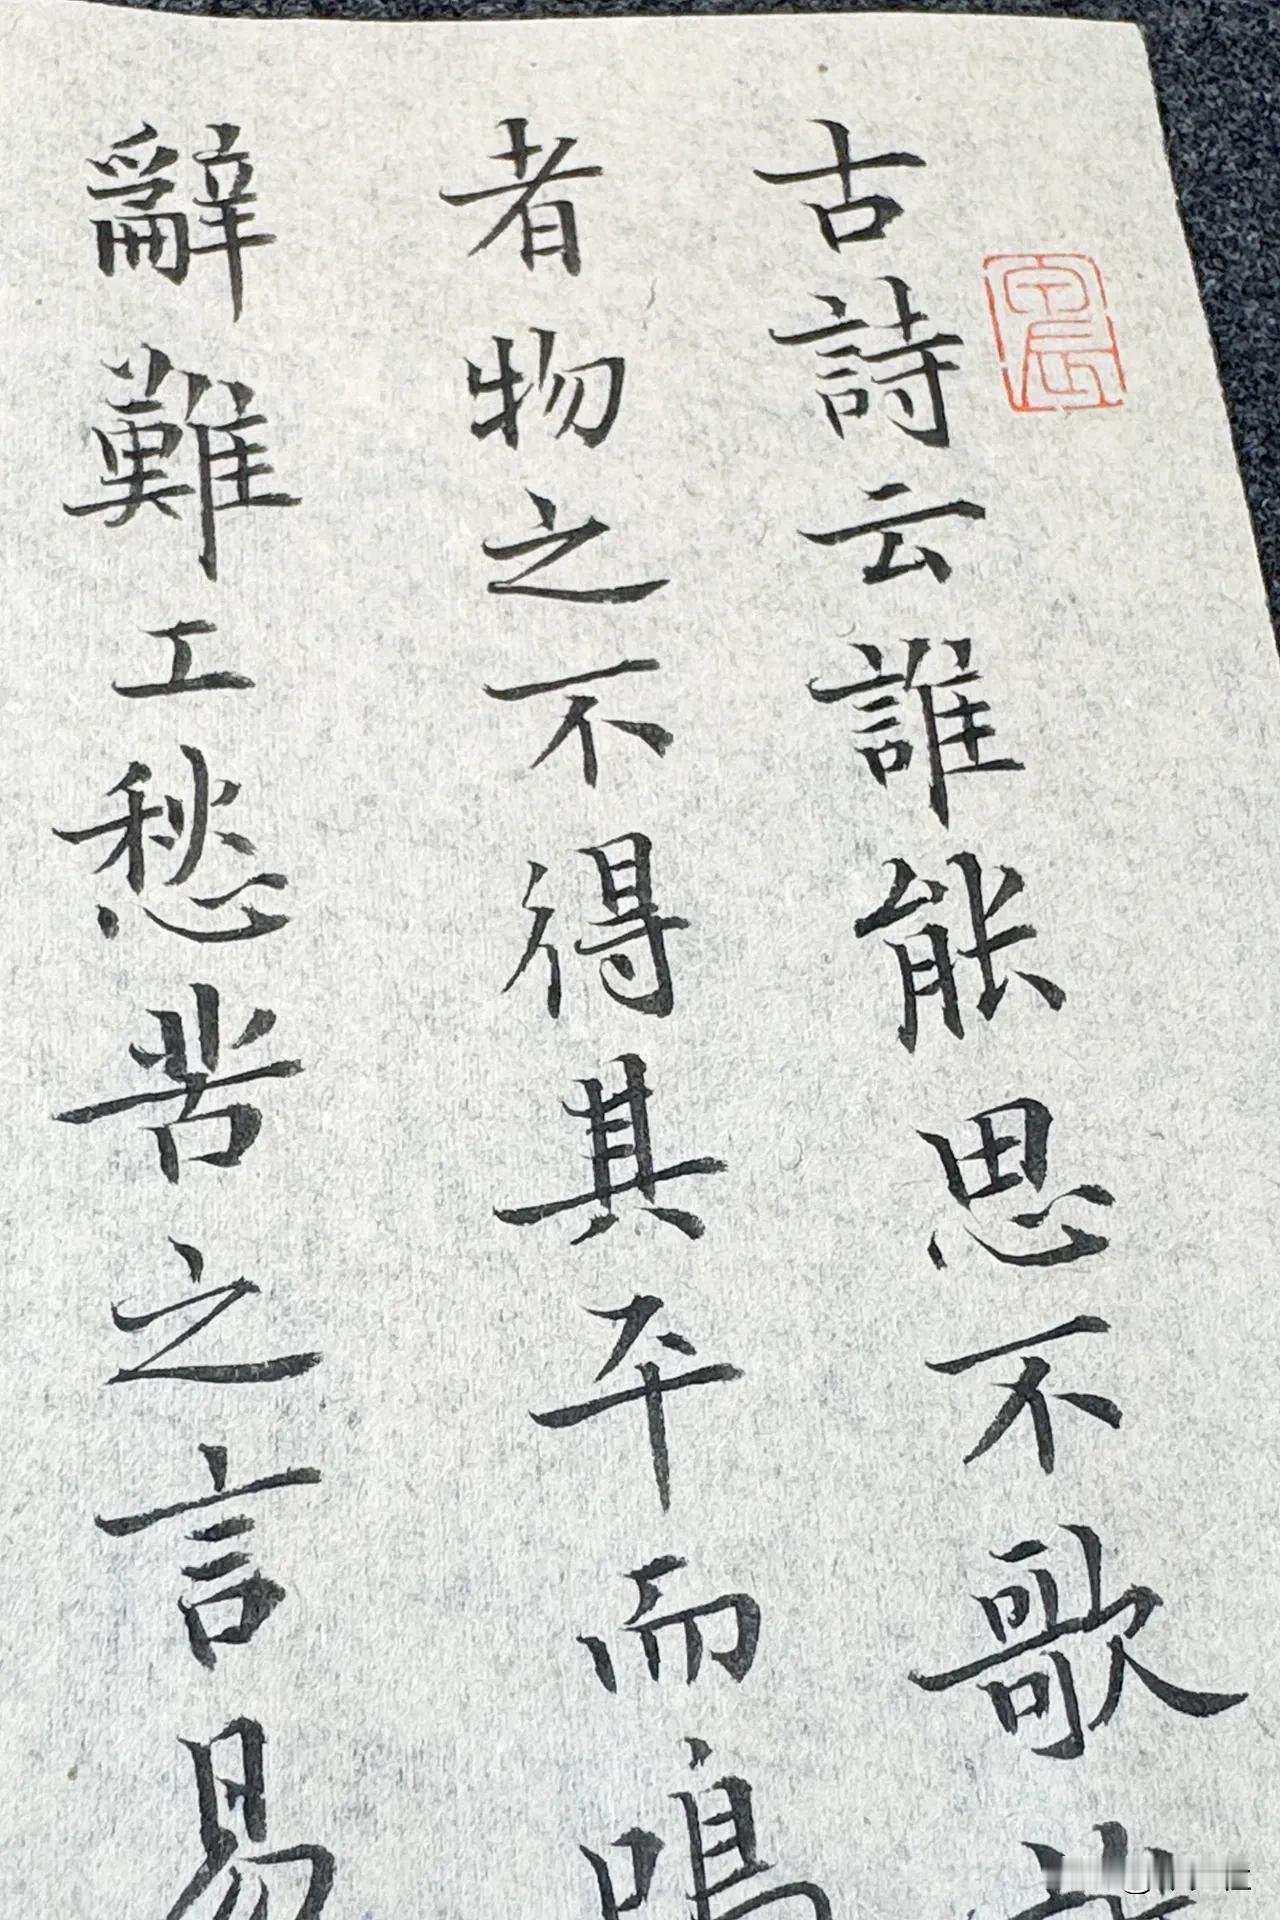 古詩云誰能思不歌
者物之不得其平而鳴
辭難工愁苦之言易
甲辰